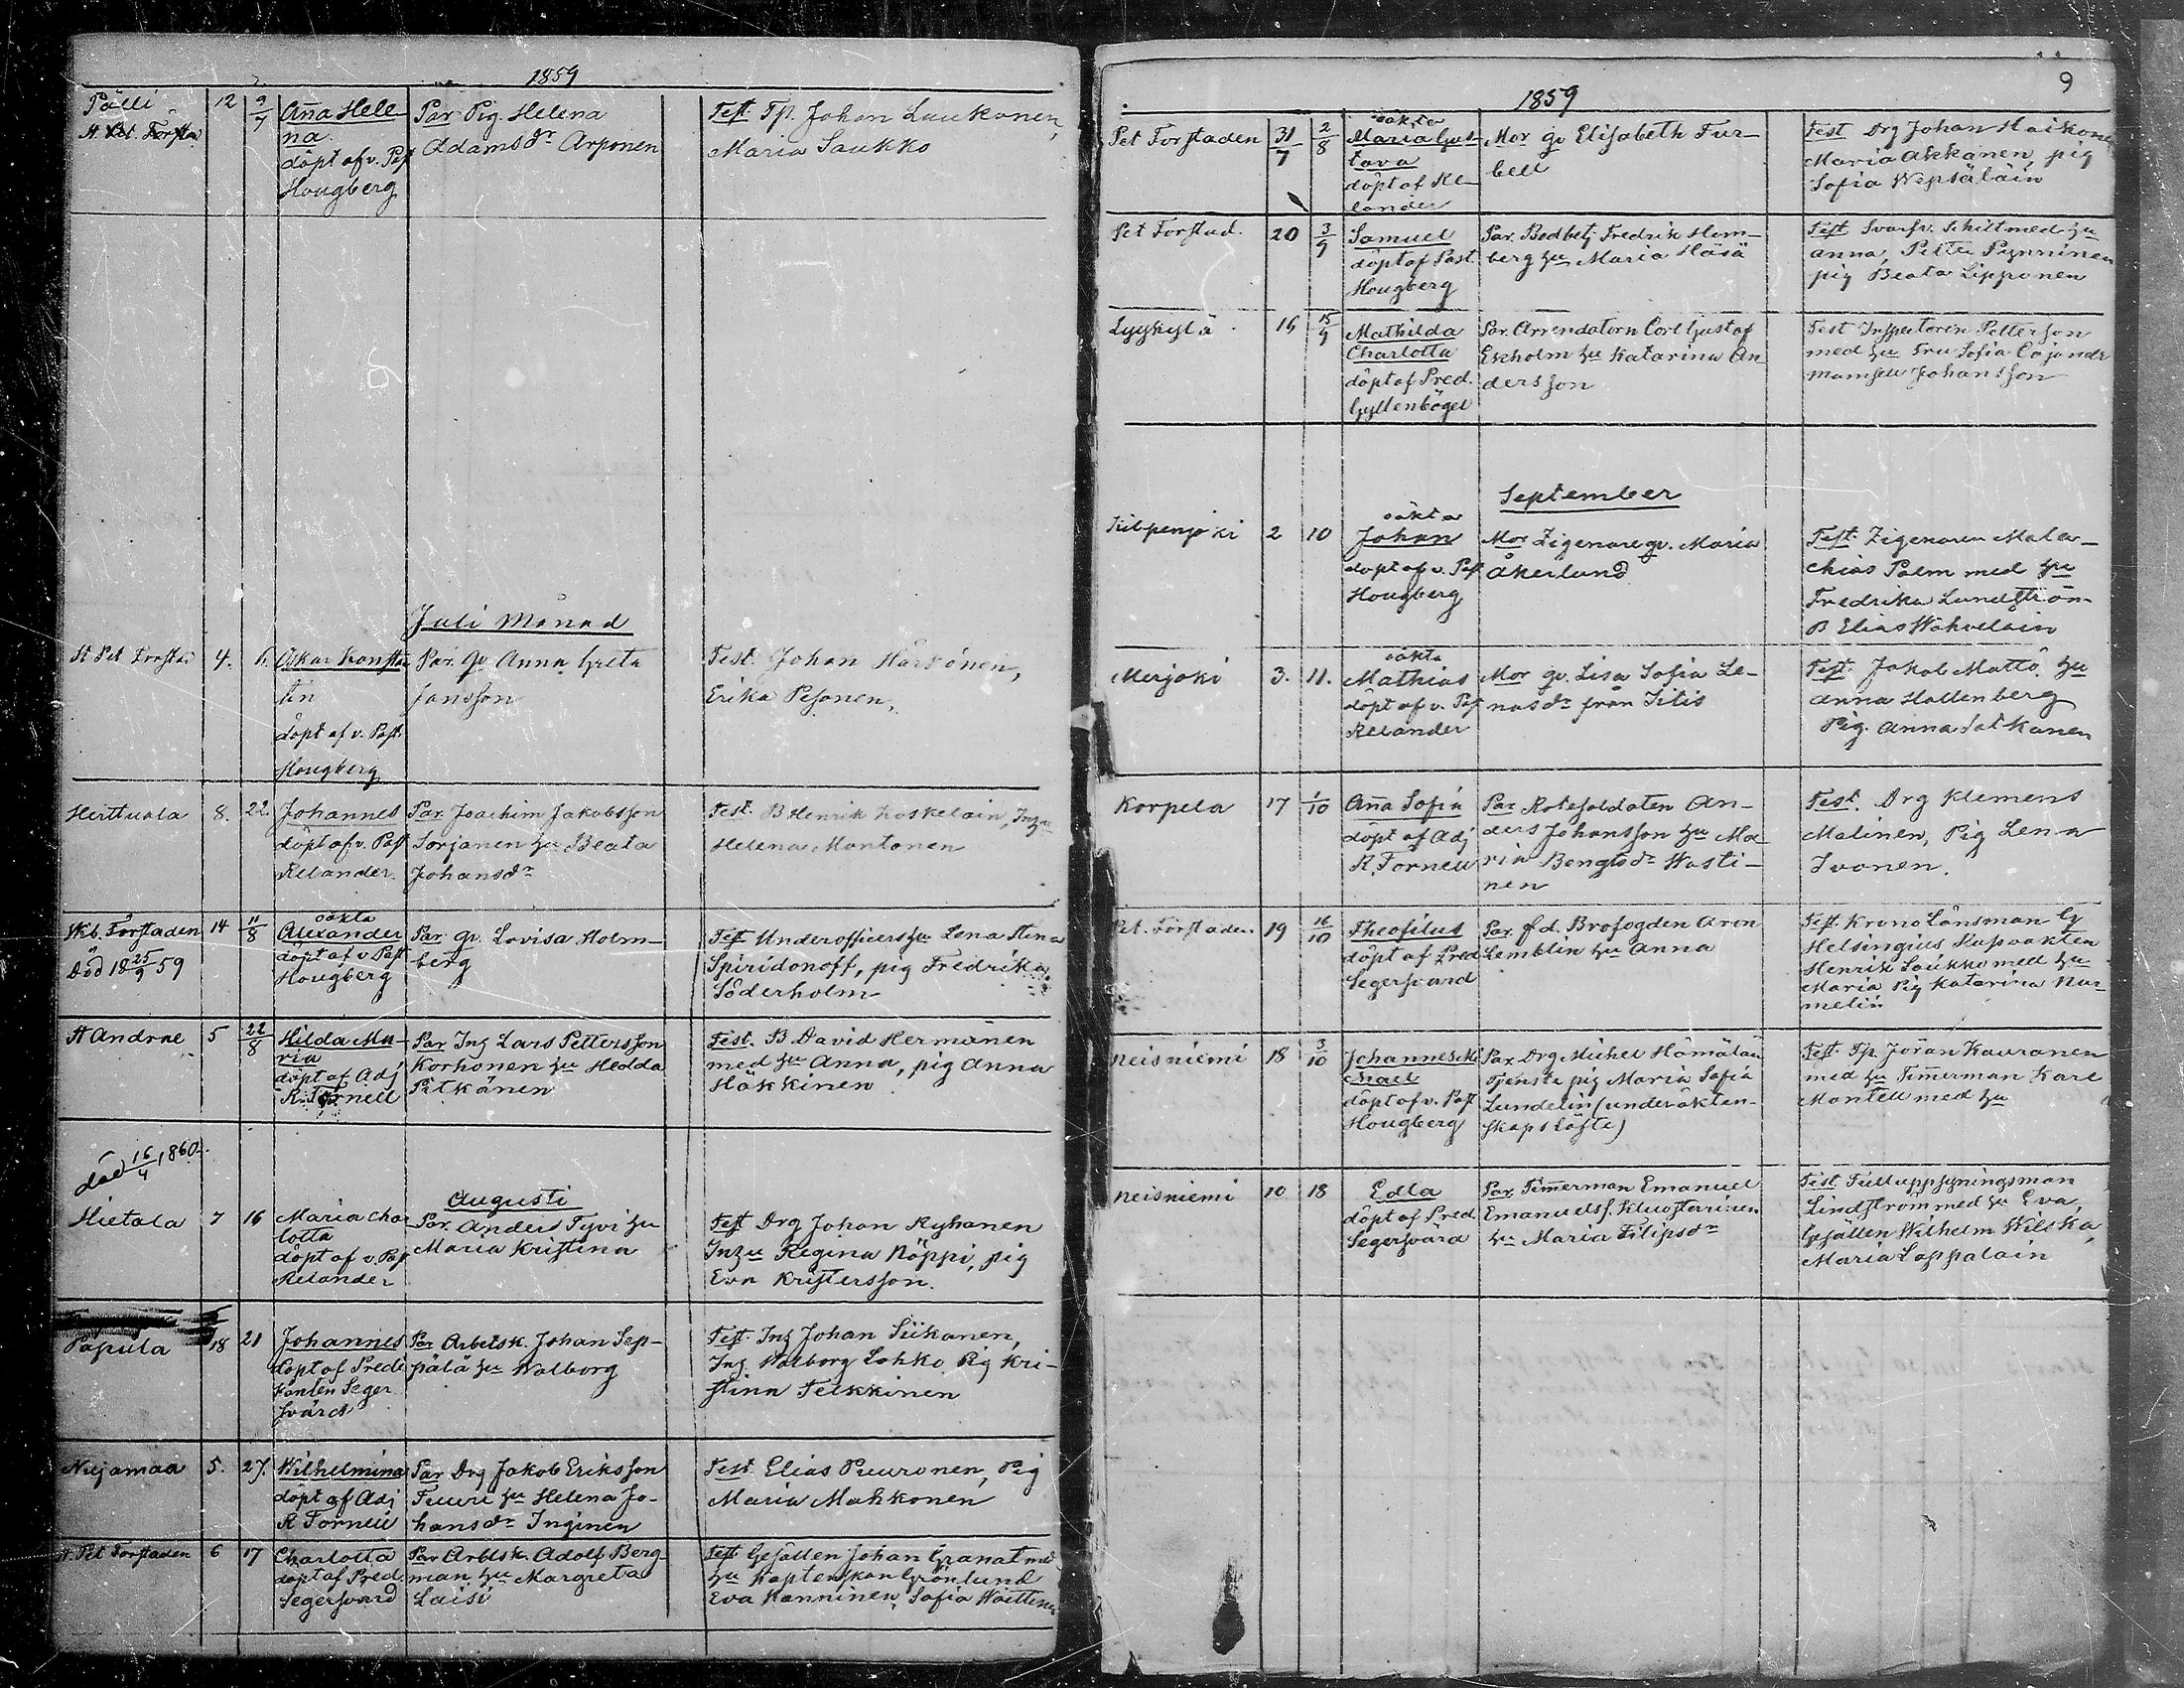 1859
Pälli
St Pet. Förstn
12
9/7
Aña Hele-
na.
döpt af v. Past
Hougberg
Par Pig. Helena
Adamsdr Arponen
Test. Tp. Johan Luukonen,
Maria Saukko
Juli Månad
St Pet Forstad
4.
Oskar Konstan
tin
döpt af v. Past.
Hougberg
Par. qv. Anna Greta
Jansson
Test. Johan Härkönen,
Erika Pesonen.
Herttuala
8.
22.
Johannes
döpt af v. Past
Relander.
Par. Joachim Jakobsson
Sorjanen hu Beata
Johansdr
Test. B Henrik Koskelain, Inhu
Helena Montonen
Wib. Förstaden
Död 18 25/9 59
14
11/8
oäkta
Alexander
döpt af v Past
Hougberg
Par qv. Lovisa Holm-
berg
Test Underofficers hu Lena Stina
Spiridonoff, pig Fredrika
Söderholm
St Andræ
5
22/8
Hilda Ma-
ria
döpt af Adj
R. Fornell
Par Inh Lars Pettersson
Korhonen hu Hedda
Pitkänen
Test. B David Hermänen
med hu Anna, pig Anna
Häkkinen
död 16/4 1860.
Augusti
Hietala
7
16
Maria Char
lotta
döpt af v. Past
Relander
Par. Anders Tyvi hu
Maria Kristina
Test Drg Johan Ryhänen
Inhu Regina Nöppi, pig
Eva Kristersson.
Papula
18
21
Johannes
döpt af Predi
kanten Seger
svärd
Par Arbetsk. Johan Sep-
pälä hu Walborg
Test. Inh Johan Siikanen,
Inh. Walborg Lohko, Pig Kri-
stina Telkkinen
Nujamaa
5.
27.
Wilhelmina
döpt af Adj
R Forneu
Par Drg Jakob Eriksson
Tuuri hu Helena Jo-
hansdr Inginen
Test Elias Puuronen, Pig
Maria Mahkonen
St. Pet Forstaden
6
17
Charlotta
döpt af Pred.
Segersvard
Par Arbtsk. Adolf Berg-
man hu Margreta
Laisi
Test Gesällen Johan Granat med
hu Kaptenskan Grönlund
Eva Kanninen, Sofia Woittinen
9
1859
Pet Forstaden
31/7
2/8
oäkta
Maria Gus-
tava
döpt af Re-
lander
Mor qv Elisabeth Fur-
bell
Test Drg Johan Haikonen
Maria Akkanen, pig
Sofia Wepsäläin
Pet Forstad.
20
3/9
Samuel
döpt af Past.
Hougberg
Par. Bedbetj Fredrik Hem-
berg hu Maria Häsä
Test Svarfv. Schilt med hu
Anna, Petter Pynninen
pig Beata Lipponen
Lyykylä
16
15/9
Mathilda
Charlotta
döpt af Pred.
Gyllenbögel
Par. Arrendatorn Carl Gustaf
Ekholm hu Katarina An
dersson
Test Inspectoren Petterson
med hu Fru Sofia Cajander
Mamsell Johansson
September
Kilpenjoki
2
10
oäkta
Johan
döpt af v. Past
Hougberg
Mor Zigenare qv. Maria
Åkerlund
Test. Zigenaren Mala-
chias Palm med hu
Fredrika Lundström
B Elias Wahvelain
Merjoki
3.
11.
oäkta
Mathias
döpt af v. Past
Relander
Mor qv. Lisa Sofia Le-
nasdr från Iitis
Test. Jakob Matto hu
Anna Hallenberg
Pig. Anna Satkanen
Korpela
17
1/10
Aña Sofia
döpt af Adj
R. Fornell
Par Rotesoldaten An-
ders Johansson hu Ma
ria Bengtsdr Wasti-
nen
Test. Drg Klemens
Malinen, Pig Lena
Ivonen.
Pet. Förstaden.
19
16/10
Theofilus
döpt af Pred
Segersvard
Par. f.d. Brofogden Aron
Lemblin hu Anna
Test. Krono Länsman
Helsingius
Henrik Saukko med hu
Maria Pig Katarina Nur-
melin
Neisniemi
18
3/10
Johannes Mi
chael
döpt af v. Past
Hougberg
Par Drg Michel Hämäläin
Tjenste pig Maria Sofia
Lundelin (under äkten-
skaps löfte)
Test. Tp. Jöran Kauranen
med hu Tim̄erman Karl
Mantell med hu
Neisniemi
10
18
Edla
döpt af Pred
Segersvärd
Par Tim̄erman Emanuel
Emanuels.
hu Maria Filipsdr
Test. Tulluppsyningsman
Lindström med hu Eva,
Gesällen Wilhelm Wilska,
Maria Lappalain